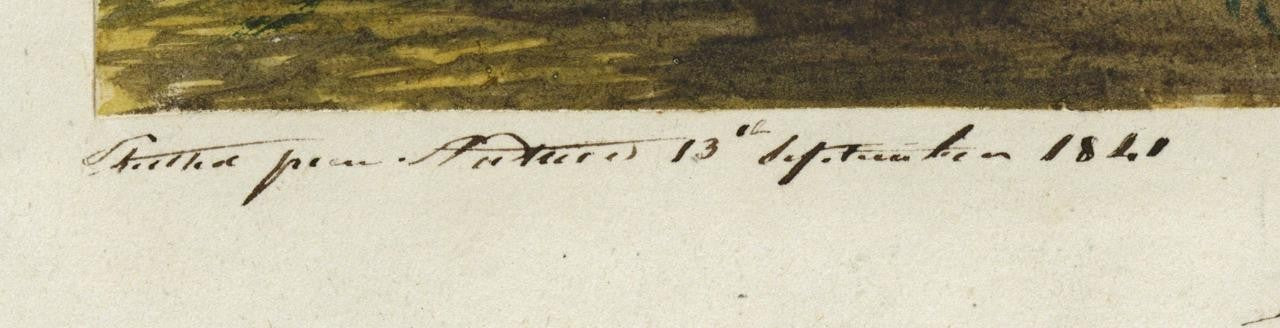 Sketched from Nature 13th September 1841